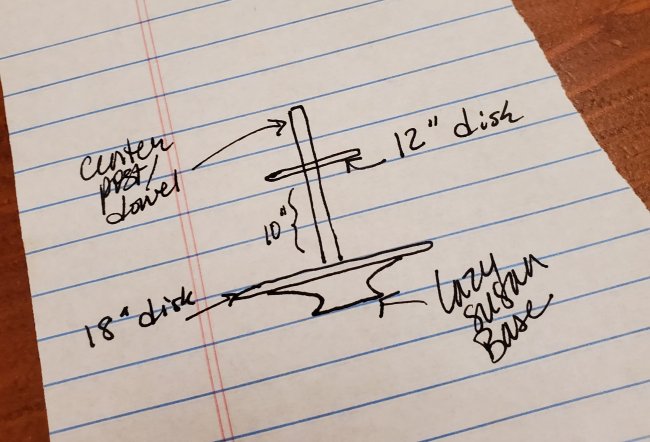 center
post/
dowel
12" disk
10"
18" disk
Lazy
Susan
Base